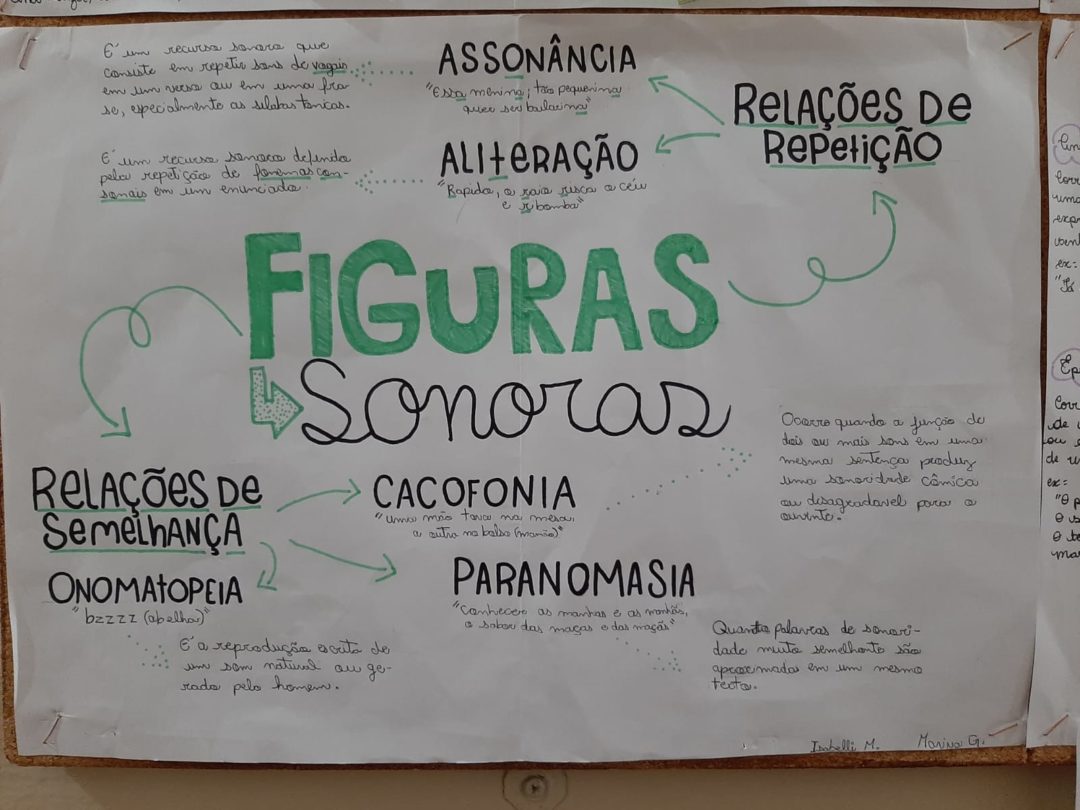 FIGURAS
Sonoras
RELAÇÕES DE
REPETIÇÃO
ASSONÂNCIA
"Essa menina; tão pequenina
quer ser bailarina"
É um recurso sonoro que
consiste em repetir sons de vogais
em um verso ou em uma fra-
se, especialmente as silabas tonicas.
ALITERAÇÃO
"Rapido, o raio risca o céu
e ribomba"
É um recurso sonoro definido
pela repetição de fonemas con-
sonais em um enunciado.
RELAÇÕES DE
SEMELHANÇA
CACOFONIA
"uma mão tava na mesa,
a outra no bolso (mamão)"
Ocorre quando a função de
dois ou mais sons em uma
mesma sentença produz
uma sonoridade cômica
ou desagradavel para o
ouvinte.
ONOMATOPEIA
"bzzzz (abelha)"
É a reprodução escrita de
um som natural ou ge-
rado pelo homem.
PARANOMASIA
"Conhecer as manhas e as manhãs,
o sabor das maças e das maçãs"
Quando palavras de sonori-
dade muito semelhante são
aproximadas em um mesmo
texto.
Isabelli M. Marina G.
ex:
"Já
Ep
de
ou
ex:
"O p